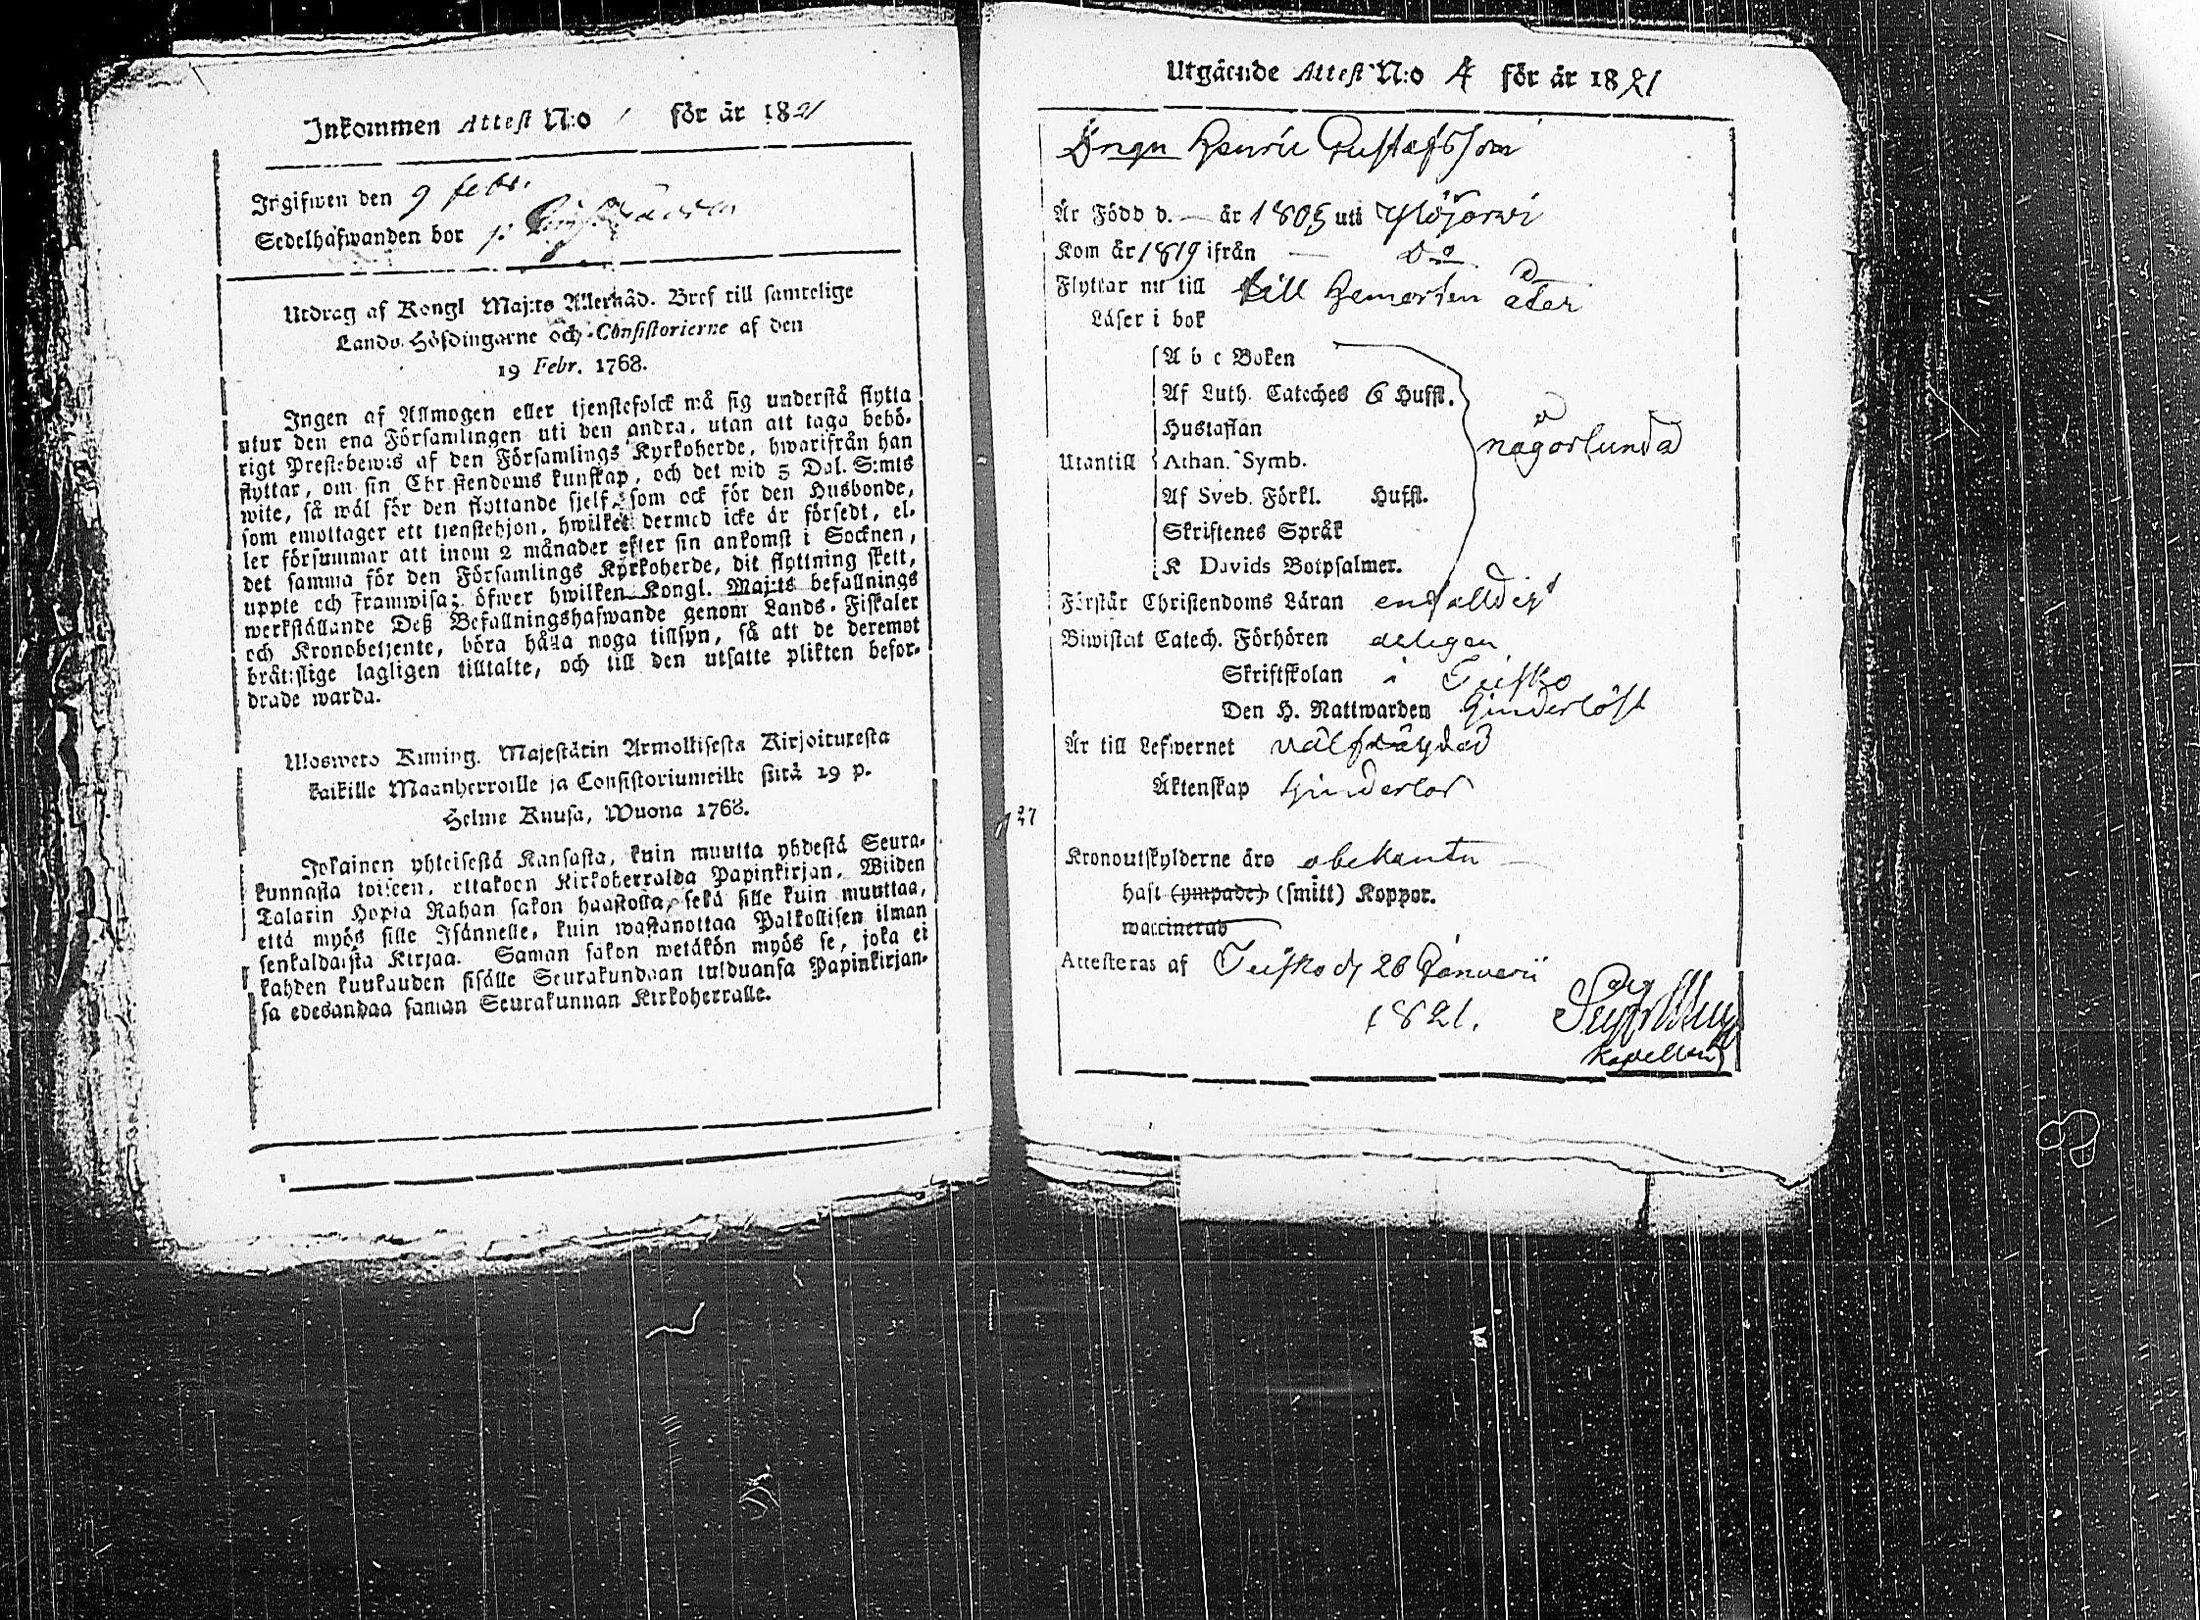 Inkommen Attest N:o 1 för år 1821
Ingifwen den 9 febr.
Sedelhafwanden bor
Utdrag af Kongl Maj:ts Allernåd. Bref till samtelige
Lands-Höfdingarne och Consistorierne af den
19 Febr. 1768.
Ingen af Allmogen eller tjenstefolck må sig understå flytta
utur den ena Församlingen uti den andra, utan att taga behö-
rigt Prestebewis af den Församlings Kyrkoherde, hwarifrån han
flyttar, om sin Christendoms kunskap, och det wid 5 Dal. S:mts
wite, så wäl för den flyttande sjelf, som ock för den Husbonde,
som emottager ett tjenstehjon, hwilket dermed icke är försedt, el-
ler försummar att inom 2 månader efter sin ankomst i Socknen,
det samma för den Församlings Kyrkoherde, dit flyttning skett,
uppte och framwisa; öfwer hwilken Kongl. Maj:ts befallnings
werkställande Deß Befallningshafwande genom Lands-Fiskaler
och Kronobetjente, böra hålla noga tillsyn, så att de deremot
brätslige lagligen tilltalte, och till den utsatte plikten befor-
drade warda.
Ulosweto Kuning. Majestätin Armollisesta Kirjoituxesta
kaikille Maanherroille ja Consistoriumeille siitä 19 p.
Helme Kuusa, Wuona 1768.
Jokainen yhteisestä Kansasta, kuin muutta yhdestä Seura-
kunnasta toiseen, ottakoon Kirkoherralda Papinkirjan, Wiiden
Talarin Hopia Rahan sakon haastolla, sekä sille kuin muuttaa,
että myös sille Isännelle, kuin wastanottaa Palkollisen ilman
senkaldaista Kirjaa. Saman sakon wetäkön myös se, joka ei
kahden kuukauden sisälle Seurakundaan tulduansa Papinkirjan-
sa edesandaa saman Seurakunnan Kirkoherralle.
Utgående Attest N:o 4 för år 1821
Drngn Henric Gustafsson
Är Född d. — år 1805 uti Ylöjerwi
Kom år 1819 ifrån — D:o
Flyttar nu till till Hemorten åter
Läser i bok
A b c Boken
Af Luth. Cateches 6 Hufst.
Hustaflan
någorlunda
Utantill Athan. Symb.
Af Sveb. Förkl. Hufst.
Skriftenes Språk
K Davids Botpsalmer.
Förstår Christendoms Läran enfalldigt
Biwistat Catech. Förhören
Skriftskolan i Teisko
Den H. Nattwarden hinderlöst
Är till Lefwernet välfräjdad
Äktenskap hinderlös
27
Kronoutskylderne äro obekanta —
haft (ympade) (smitt) Koppor.
waccinerad
Attesteras af Teisko d. 26 Januarii
1821.
Kapellan